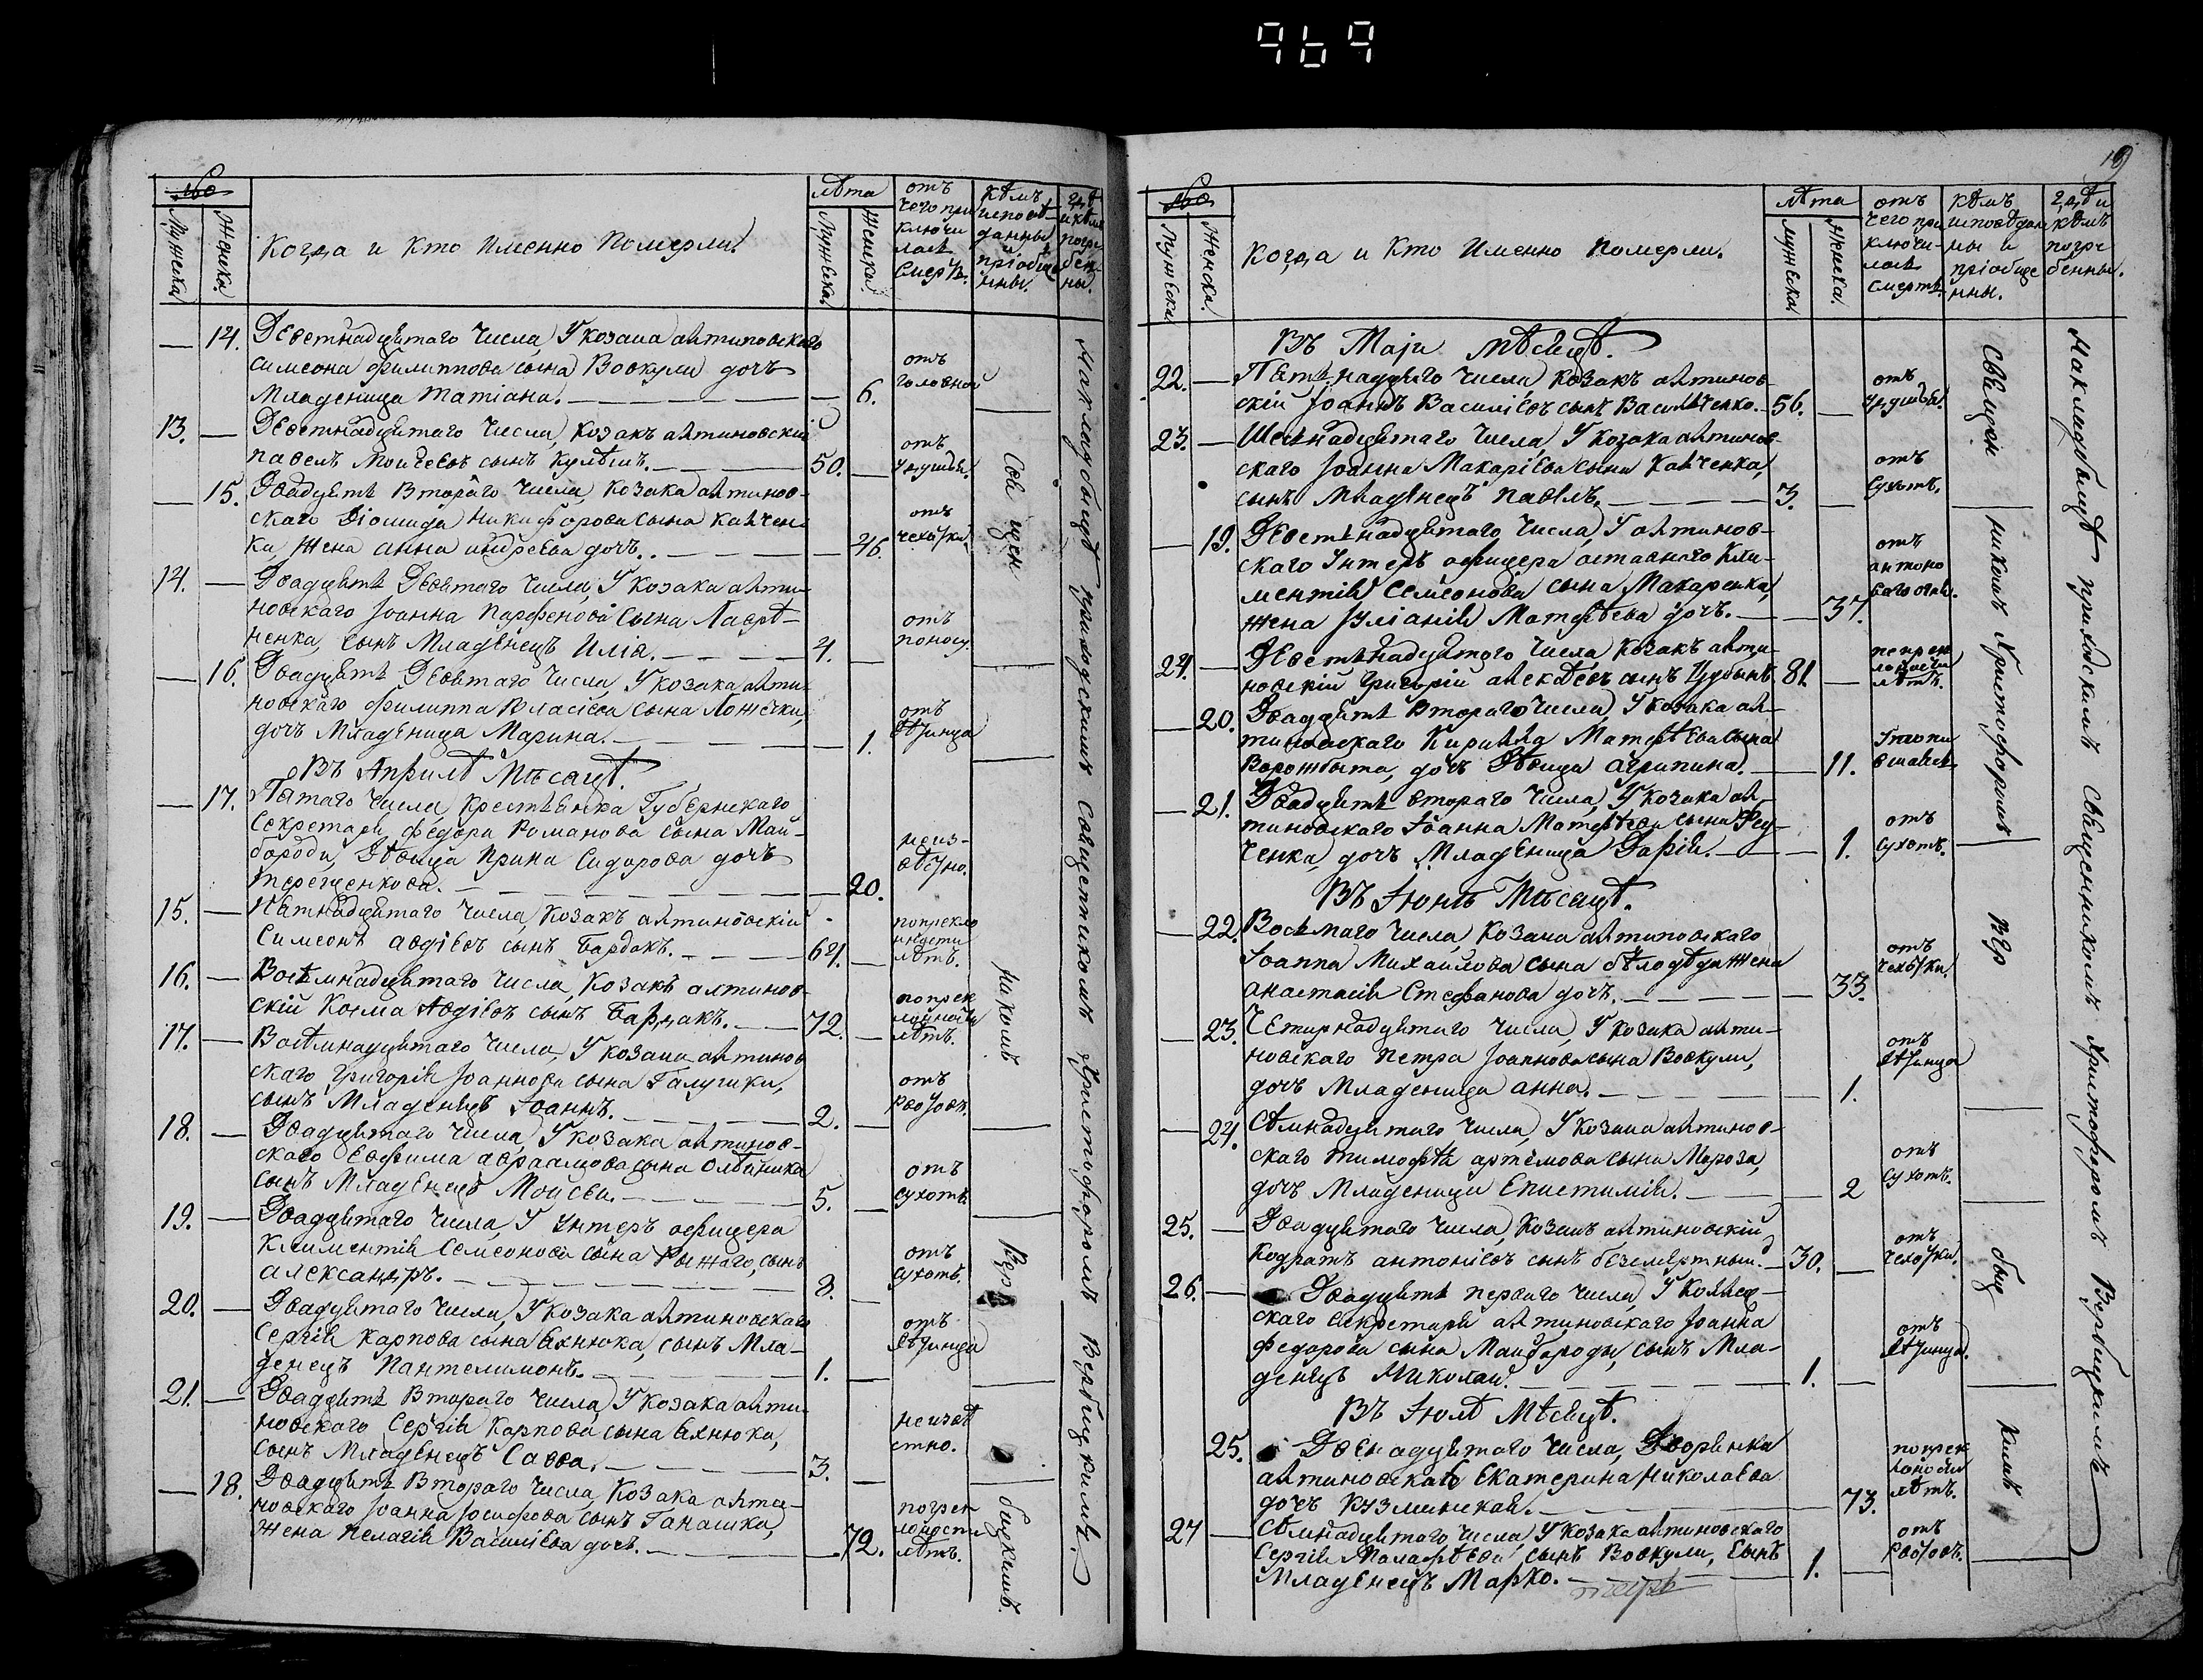 969
№
Мужеска
Женска.
Когда и Кто Именно Померли.
лѣта
Мужеска.
Женска
отъ чего при ключи лась Смерть.
кѣмъ исповѣ- данны и пріобще нны.
гдѣ и кѣмъ погре бен- ны.
14. Деветнадцятаго Числа, У козака алтиновского
Симеона Филиппова сына Вовкули дочъ
Младеница Татіана. 6. отъ головной
13. Деветнадцятаго Числа, Козакъ алтиновскій
павелъ Моѵсеевъ сынъ Кулѣшъ. 50. отъ удушья.
15. Двадцять Втораго Числа, Козака алтинов-
скаго Діомида Никифорова сына Калчен-
ка, Жена анна андреева дочъ. 46. отъ чехотки.
14. Двадцять Девятаго Числа, У козака алти-
новскаго Іоанна Парфенова Сына Лаврѣ-
ненка, сынъ Младенецъ Илія. 4. отъ поносу.
16. Двадцять Девятаго Числа, У козака алти-
новскаго Филиппа Власіева сына Ложечки,
дочъ Младеница Марина. 1. отъ
Въ Априлѣ Мѣсяцѣ.
17. Пятаго Числа, Крестьянка Губернскаго
Секретаря, Федора Романова сына Май-
бороди, Дѣвица Ирина Сидорова дочъ
Терещенкова. 20. неиз- вѣсно.
15. Пятнадцятаго Числа, Козакъ алтиновскій
Симеонъ авдіевъ сынъ Бардакъ. 64. попрекло нности лѣтъ.
16. Восѣмнадцятаго Числа, Козакъ алтинов-
скій Косма Авдіевъ сынъ Бардакъ. 72. попрек лонности лѣтъ.
17. Восѣмнадцятаго Числа, У козака алтинов
скаго Григорія Іоаннова сына Галушки,
сынъ Младенецъ Іоаннъ. 2. отъ
18. Двадцятаго Числа, У козака алтинов-
скаго Евфима авраамова сына Олѣйника
сынъ Младенецъ Моисей. 5. отъ сухотъ.
19. Двадцятаго Числа, У Унтеръ офицера
Климентія Семеонова сына Рыжаго, сынъ
александръ. 8. отъ сухотъ.
20. Двадцятаго Числа, У козака алтиновскаго
Сергія Карпова сына Яхнюка, сынъ Мла-
денецъ Пантелимонъ. 1. отъ
21. Двадцять Втораго Числа, У козака алти-
новскаго Сергія Карпова сына Яхнюка,
сынъ Младенецъ Савва. 3. неизвѣ стно.
18. Двадцять Втораго Числа, Козака алти-
новскаго Іоанна Іосифова сынъ Ганашка,
Жена Пелагія Василіева дочъ. 72. попрек лоности лѣтъ.
Священникомъ Христофоромъ Вербицкимъ.
На кладбищѣ приходскимъ Священникомъ Христофоромъ Вербицкимъ.
19
№
Мужеска
Женска.
Когда и Кто Именно Померли.
лѣта
Мужеска
Женска.
отъ чего при ключи- лась смерть.
кѣмъ исповѣдан ны и пріобще нны.
гдѣ и кѣмъ погре бенны.
Въ Маіи Мѣсяцѣ.
22. Пятьнадцяго Числа, Козакъ алтинов-
скій Іоаннъ Василіевъ сынъ Василѣченко. 56. отъ удушья.
23. Шеснадцятаго Числа, У козака алтинов-
скаго Іоанна Макаріева сына Калченка,
сынъ Младенецъ Павелъ. 3. отъ Сухотъ.
19. Деветьнадцятаго, Числа, У алтинов-
скаго Унтеръ офицера отставнаго Кли-
ментія Семеонова сына Макаренка,
Жена Іуліанія Матфѣева дочъ. 37. отъ антоно ваго огня.
24. Деветьнадцятого Числа, Козакъ алти-
новскій Григорій алексѣевъ сынъ Цубынъ 81. попрек лѣтъ.
20. Двадцять Втораго Числа, У козака ал-
тиновскаго Кирилла Матфѣева сына
Ворожбыта, дочъ Дѣвица Агрипина. 11. Утопи вшаяся.
21. Двадцять втораго Числа, У козака ал-
тиновскаго Іоанна Матфѣева сына
ченка, дочъ Младеница Дарія. 1. отъ сухотъ.
Въ Іюнѣ Мѣсяцѣ.
22. Восьмаго Числа, Козака алтиновскаго
Іоанна Михайлова сына бѣлодѣда Жена
анастасія Стефанова дочъ. 33. отъ чехотки.
23. Четирнадцятаго Числа, У козака алти-
новскаго петра Іоаннова сына Вовкули,
дочъ Младеница анна. 1. отъ
24. Сѣмнадцятаго Числа, У козака алтинов-
скаго тимофѣя артемова сына Мороза,
дочъ Младеница Епистимія. 2 отъ сухотъ.
25. Двадцятаго Числа, Козакъ алтиновскій
Кодратъ антоніевъ сынъ безсмертный. 30. отъ чехотки.
26. Двадцять перваго Числа, У Коллеж-
скаго Секретаря алтиновскаго Іоанна
Федорова сына Майбороди, сынъ Мла-
денецъ Николай. 1. отъ
Въ Іюлѣ Мѣсяцѣ.
25. Двенадцятаго Числа, Дворянка
алтиновская Екатерина Николаева
дочъ Кузминская. 73. попрек лоности лѣтъ.
27 Сѣмнадцятаго Числа, У козака алтиновскаго
Сергія Малафѣева сынъ Вовкули, Сынъ
Младенецъ Марко. 1. отъ
Священникомъ Христофоромъ Вербицкимъ
На кладбищѣ приходскимъ Священникомъ Христофоромъ Вербицкимъ